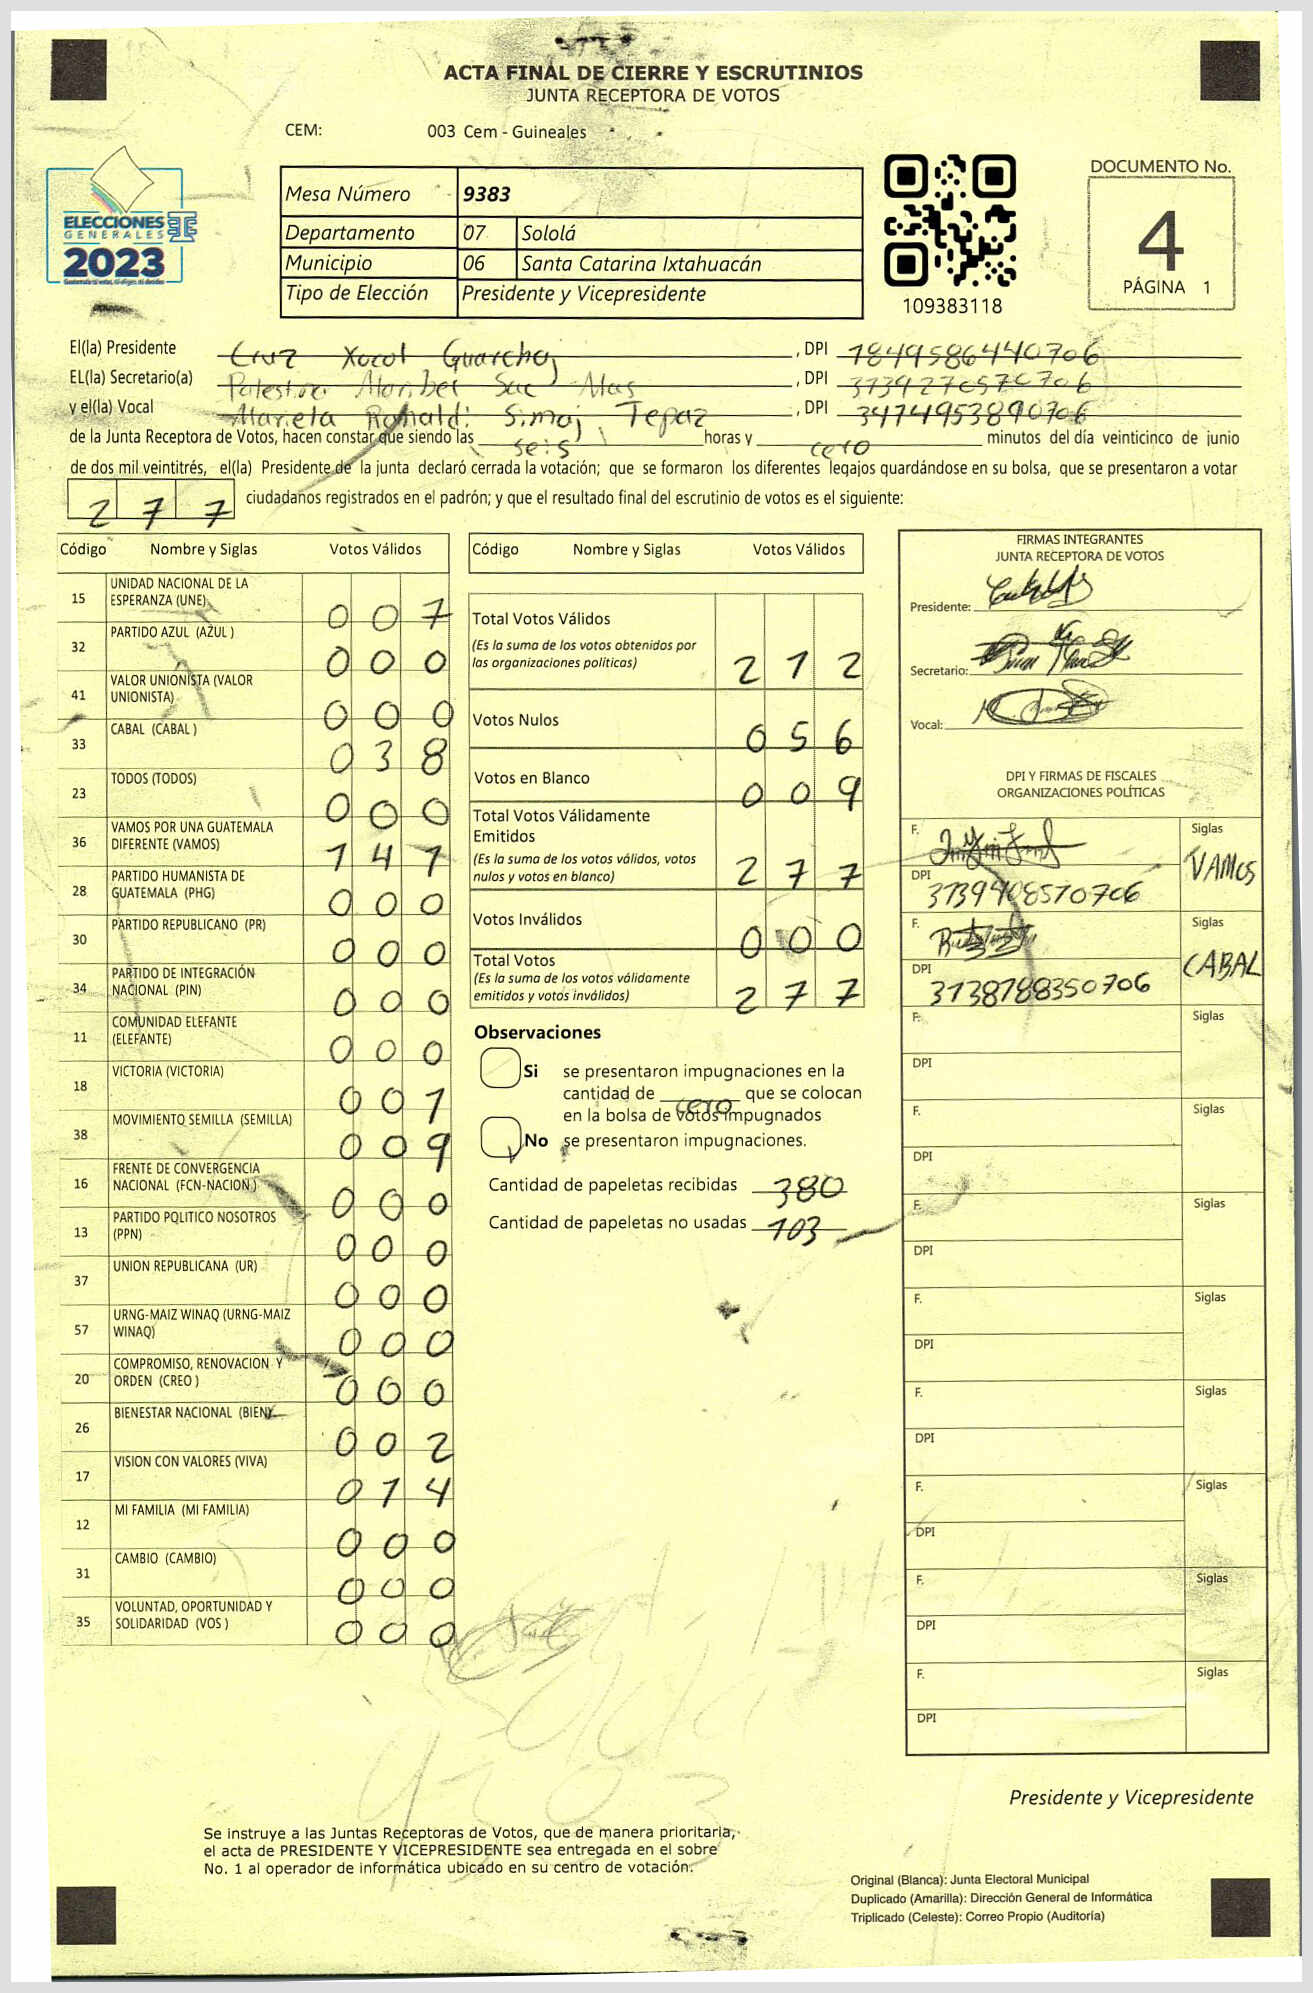 ACTA FINAL DE CIERRE Y ESCRUTINIOS
JUNTA RECEPTORA DE VOTOS
CEM: 003 Cem - Guineales
ELECCIONES
GENERALES
2023
Mesa Número 9383
Departamento 07 Sololá
Municipio 06 Santa Catarina Ixtahuacán
Tipo de Elección Presidente y Vicepresidente
109383118
DOCUMENTO No.
4
PÁGINA 1
El(la) Presidente Cruz Xocol Guarchaj, DPI 1849586440706
EL(la) Secretario(a) Maribel Sac, DPI
y el(la) Vocal Simaj Tepaz, DPI 3474953890706
de la Junta Receptora de Votos, hacen constar que siendo las seis horas y cero minutos del día veinticinco de junio
de dos mil veintitrés, el(la) Presidente de la junta declaró cerrada la votación; que se formaron los diferentes legajos guardándose en su bolsa, que se presentaron a votar
277 ciudadanos registrados en el padrón; y que el resultado final del escrutinio de votos es el siguiente:
Código Nombre y Siglas Votos Válidos
15 UNIDAD NACIONAL DE LA ESPERANZA (UNE) 007
32 PARTIDO AZUL (AZUL ) 000
41 VALOR UNIONISTA (VALOR UNIONISTA) 000
33 CABAL (CABAL ) 038
23 TODOS (TODOS) 000
36 VAMOS POR UNA GUATEMALA DIFERENTE (VAMOS) 141
28 PARTIDO HUMANISTA DE GUATEMALA (PHG) 000
30 PARTIDO REPUBLICANO (PR) 000
34 PARTIDO DE INTEGRACIÓN NACIONAL (PIN) 000
11 COMUNIDAD ELEFANTE (ELEFANTE) 000
18 VICTORIA (VICTORIA) 001
38 MOVIMIENTO SEMILLA (SEMILLA) 009
16 FRENTE DE CONVERGENCIA NACIONAL (FCN-NACION ) 000
13 PARTIDO POLITICO NOSOTROS (PPN) 000
37 UNION REPUBLICANA (UR) 000
57 URNG-MAIZ WINAQ (URNG-MAIZ WINAQ) 000
20 COMPROMISO, RENOVACION Y ORDEN (CREO ) 000
26 BIENESTAR NACIONAL (BIEN) 002
17 VISION CON VALORES (VIVA) 014
12 MI FAMILIA (MI FAMILIA) 000
31 CAMBIO (CAMBIO) 000
35 VOLUNTAD, OPORTUNIDAD Y SOLIDARIDAD (VOS ) 000
Código Nombre y Siglas Votos Válidos
Total Votos Válidos
(Es la suma de los votos obtenidos por
las organizaciones politicas) 212
Votos Nulos 056
Votos en Blanco 009
Total Votos Válidamente
Emitidos
(Es la suma de los votos válidos, votos
nulos y votos en blanco) 277
Votos Inválidos 000
Total Votos
(Es la suma de los votos válidamente
emitidos y votos inválidos) 277
Observaciones
Si se presentaron impugnaciones en la
cantidad de cero que se colocan
en la bolsa de votos impugnados
No se presentaron impugnaciones.
Cantidad de papeletas recibidas 380
Cantidad de papeletas no usadas 103
FIRMAS INTEGRANTES
JUNTA RECEPTORA DE VOTOS
Presidente:
Secretario:
Vocal:
DPI Y FIRMAS DE FISCALES
ORGANIZACIONES POLÍTICAS
F. Siglas
VAMOS
DPI
3139408570706
F. Siglas
CABAL
DPI
3138788350706
F. Siglas
DPI
F. Siglas
DPI
F. Siglas
DPI
F. Siglas
DPI
F. Siglas
DPI
F. Siglas
DPI
F. Siglas
DPI
F. Siglas
DPI
Presidente y Vicepresidente
Se instruye a las Juntas Receptoras de Votos, que de manera prioritaria,
el acta de PRESIDENTE Y VICEPRESIDENTE sea entregada en el sobre
No. 1 al operador de informática ubicado en su centro de votación.
Original (Blanca): Junta Electoral Municipal
Duplicado (Amarilla): Dirección General de Informática
Triplicado (Celeste): Correo Propio (Auditoría)